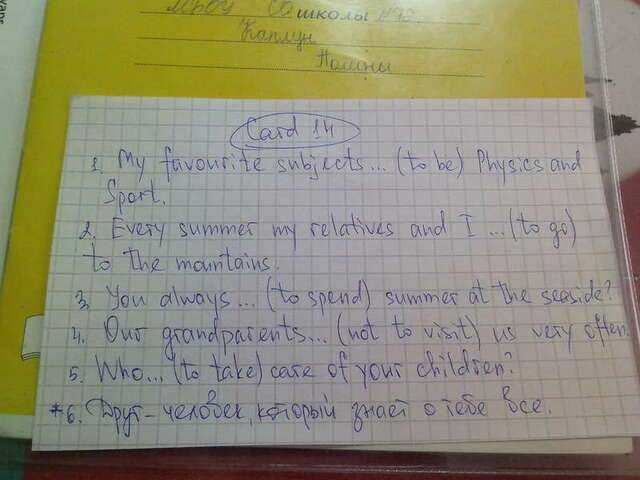 МБОУ СОшколы №
Каплун
Card 14
1. My favourite subjects... (to be) Physics and
Sport.
2. Every summer my relatives and I ... (to go)
to the mauntains.
3. You always... (to spend) summer at the seaside?
4. Our grandparents... (not to visit) us very often.
5. Who... (to take) care of your children?
*6. Друг - человек, который знает о тебе все.